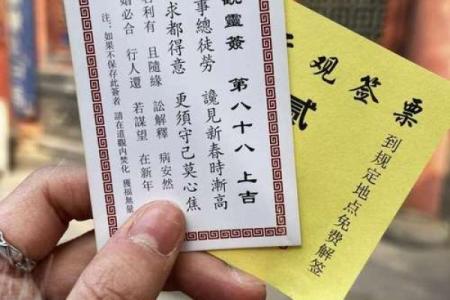 觀靈簽 第八十八 上吉
事總徒勞 讒見新春時漸高
求都得意 更須守己莫心焦
名利有 且隨緣 訟解釋 病安然
婚必合 行人還 若謀望 在新年
注：如果不保存此簽者 請在道觀內焚化 獲福無量
观签票
贰
到规定地点免费解签